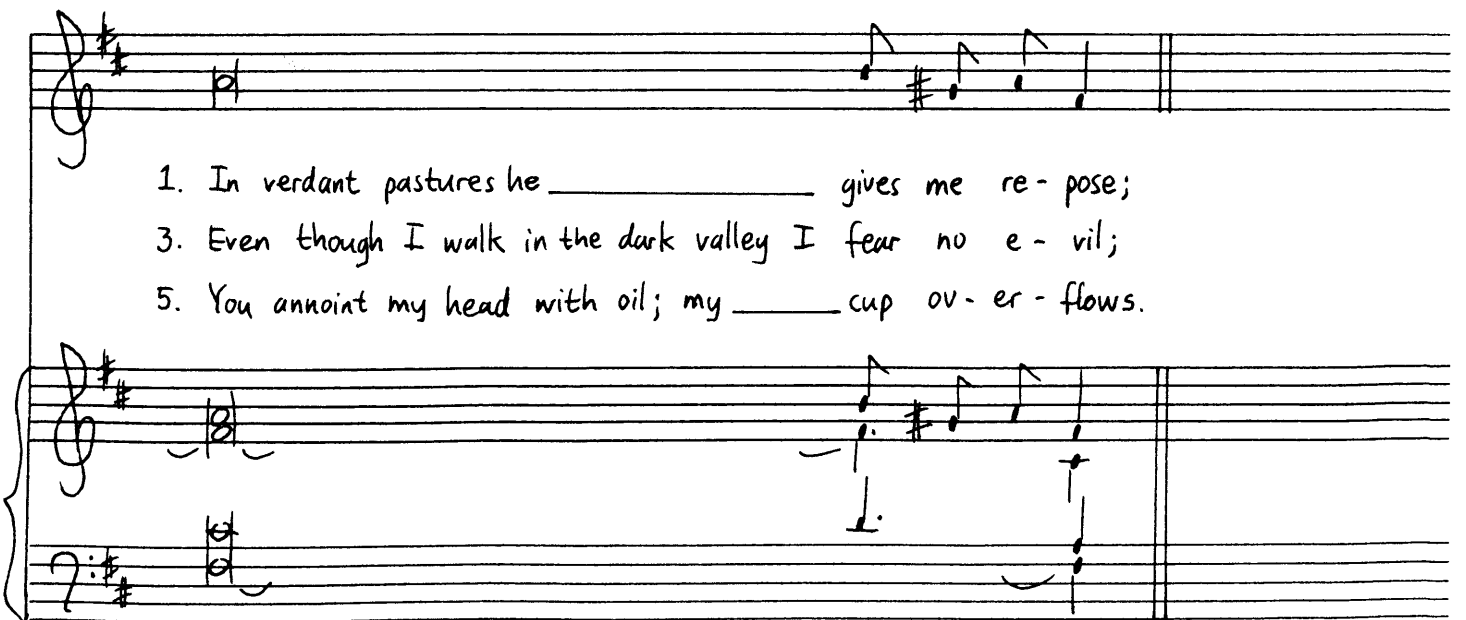 1. In verdant pastures he __________ gives me re - pose;
3. Even though I walk in the dark valley I fear no e - vil;
5. You annoint my head with oil; my _____ cup ov - er - flows.